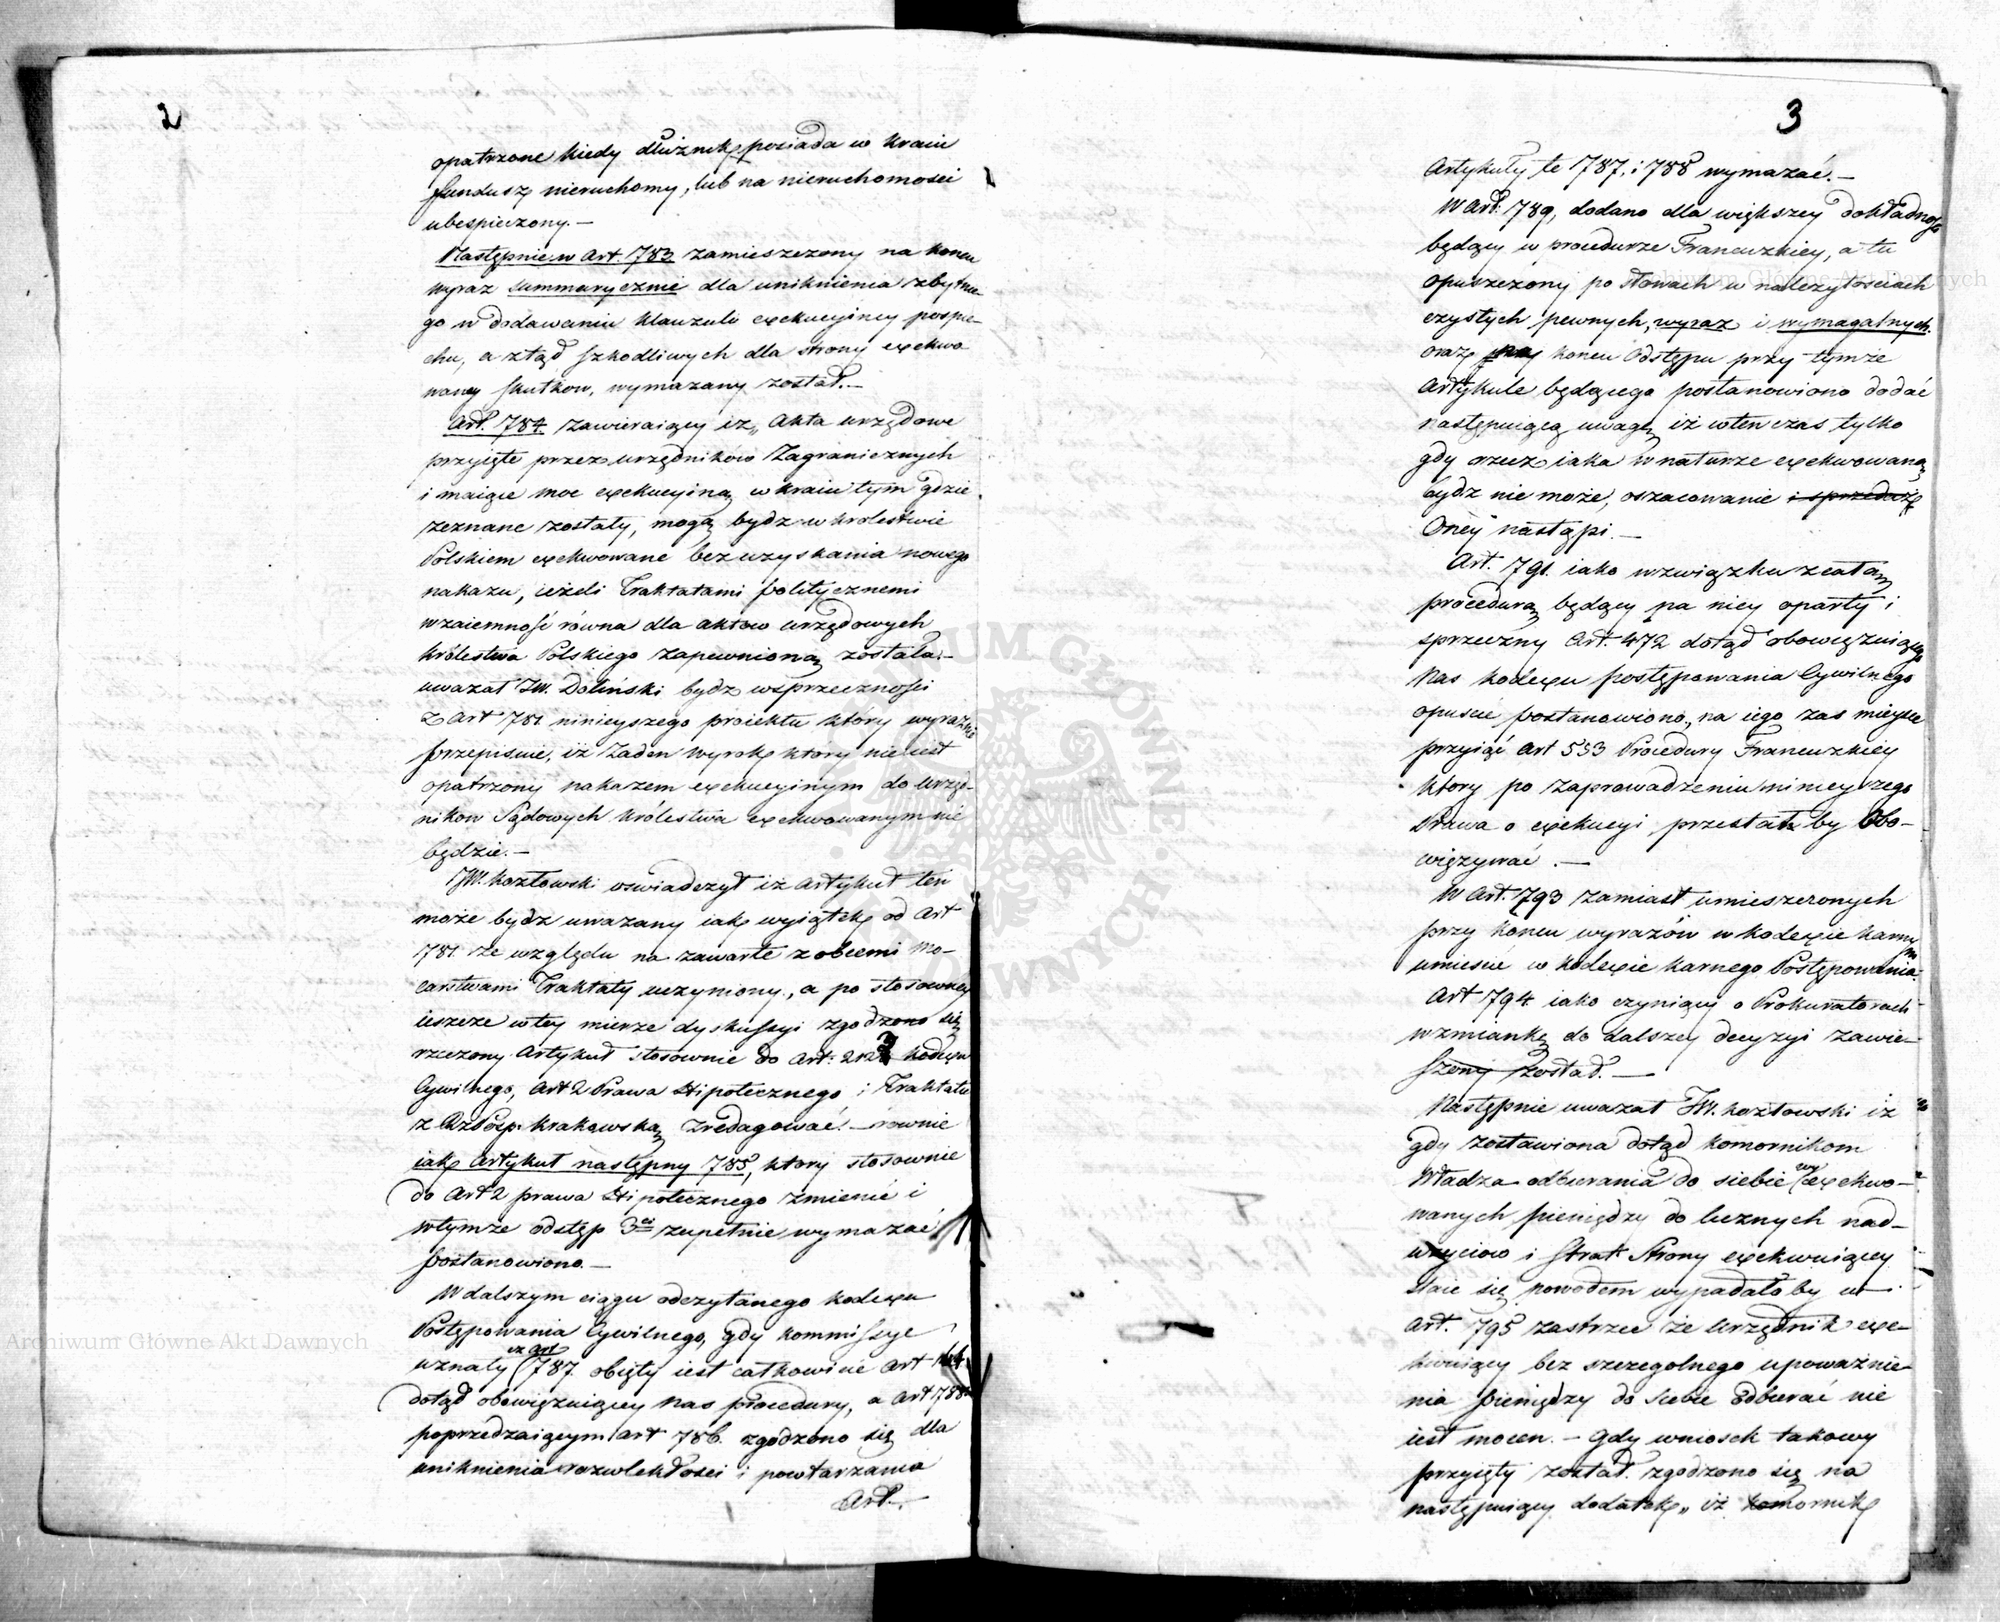 2
opatrzone kiedy dłużnik posiada w kraiu
fundusz nieruchomy, lub na nieruchomości
ubespieczony. —
Następnie w Art. 783 zamieszczony na koncu
wyraz summarycznie dla uniknienia zbytnie-
go w dodawaniu klauzuli exekucyiney pospie-
chu, a ztąd szkodliwych dla strony exekwo
waney skutkow, wymazany został. —
Art. 784. zawieraiący iż „Akta urzędowe
przyięte przez urzędnikow Zagranicznych
i maiące moc exekucyiną w kraiu tym gdzie
zeznane zostały, mogą bydz w krolestwie
Polskiem exekwowane bez uzyskania nowego
nakazu, ieżeli Traktatami politycznemi
wzaiemność równa dla aktow urzędowych
królestwa Polskiego zapewnioną została. —
uważał JW. Doliński bydz w sprzeczności
z Art 781. ninieyszego proiektu który wyraźnie
przepisuie, iż Żaden wyrok który nie iest
opatrzony nakazem exekucyinym do urzęd-
nikow Sądowych Królestwa exekwowanym nie
będzie. —
JW. Kozłowski oswiadczył iż Artykuł ten
może bydz uważany iako wyiątek od Art
781. ze względu na zawarte z obcemi Mo-
carstwami Traktaty uczyniony, a po stosowney
ieszcze w tey mierze dyskussyi zgodzono się
rzeczony Artykuł stosownie do Art: 2123 kodexu
Cywilnego, Art 2 Prawa Hipotecznego i Traktatu
z Rzpospi. Krakowską zredagować. — rownie
iak Artykuł następny 785, ktory stosownie
do Art 2 prawa Hipotecznego zmienić i
w tymże odstęp 3ci zupełnie wymazać
postanowiono. —
W dalszym ciągu odczytanego kodexu
Postępowania Cywilnego, gdy kommissye
uznały (iż Art 787. obięty iest całkowicie Art
dotąd obowięzuiącey nas procedury, a Art 788
poprzedzaiącym Art 786. zgodzono się dla
uniknienia rozwlekłości i powtarzania
Art.
3
Artykuły te 787. i 788 wymazać. —
W Art. 789, dodano dla większey dokładnoś
będący w procedurze Francuzkiey, a tu
opuszczony po słowach w należytościach
czystych pewnych, wyraz i wymagalnych.
oraz przy koncu Odstępu przy tymże
Artykule będącego postanowiono dodać
następuiącą uwagę iż wten czas tylko
gdy rzecz iaka w naturze exekwowaną
bydz nie może, oszacowanie i sprzedaż
Oney nastąpi. —
Art. 791. iako w związku z całą
procedurą będący na niey oparty i
sprzeczny Art. 472 dotąd obowięzuiącego
Nas kodexu postępowania Cywilnego
opuscić postanowiono, na iego zas mieysce
przyiąć Art 553 Procedury Francuzkiey
ktory po zaprowadzeniu ninieyszego
Prawa o exekucyi przestał by Obo-
więzywać. —
W Art. 793 zamiast umieszczonych
przy koncu wyrazów w kodexie karnym
umiescić w kodexie karnego Postępowania.
Art 794. iako czyniący o Prokuratorach
wzmiankę do dalszey decyzyi zawie-
szony został. —
Następnie uważał JW. Kozłowski iż
gdy zostawiona dotąd komornikom
Władza odbierania do siebie (wy exekwo-
wanych pieniędzy do licznych nad-
użyciow i strat Strony exekwuiącey
staie się powodem wypadałoby w
Art. 795 zastrzec że Urzędnik exe-
kwuiący bez szczegolnego upoważnie-
nia pieniędzy do siebie odbierać nie
iest mocen. — Gdy wniosek takowy
przyięty został. zgodzono się na
następuiący dodatek „iż komornik
Archiwum Główne Akt Dawnych
Archiwum Główne Akt Dawnych